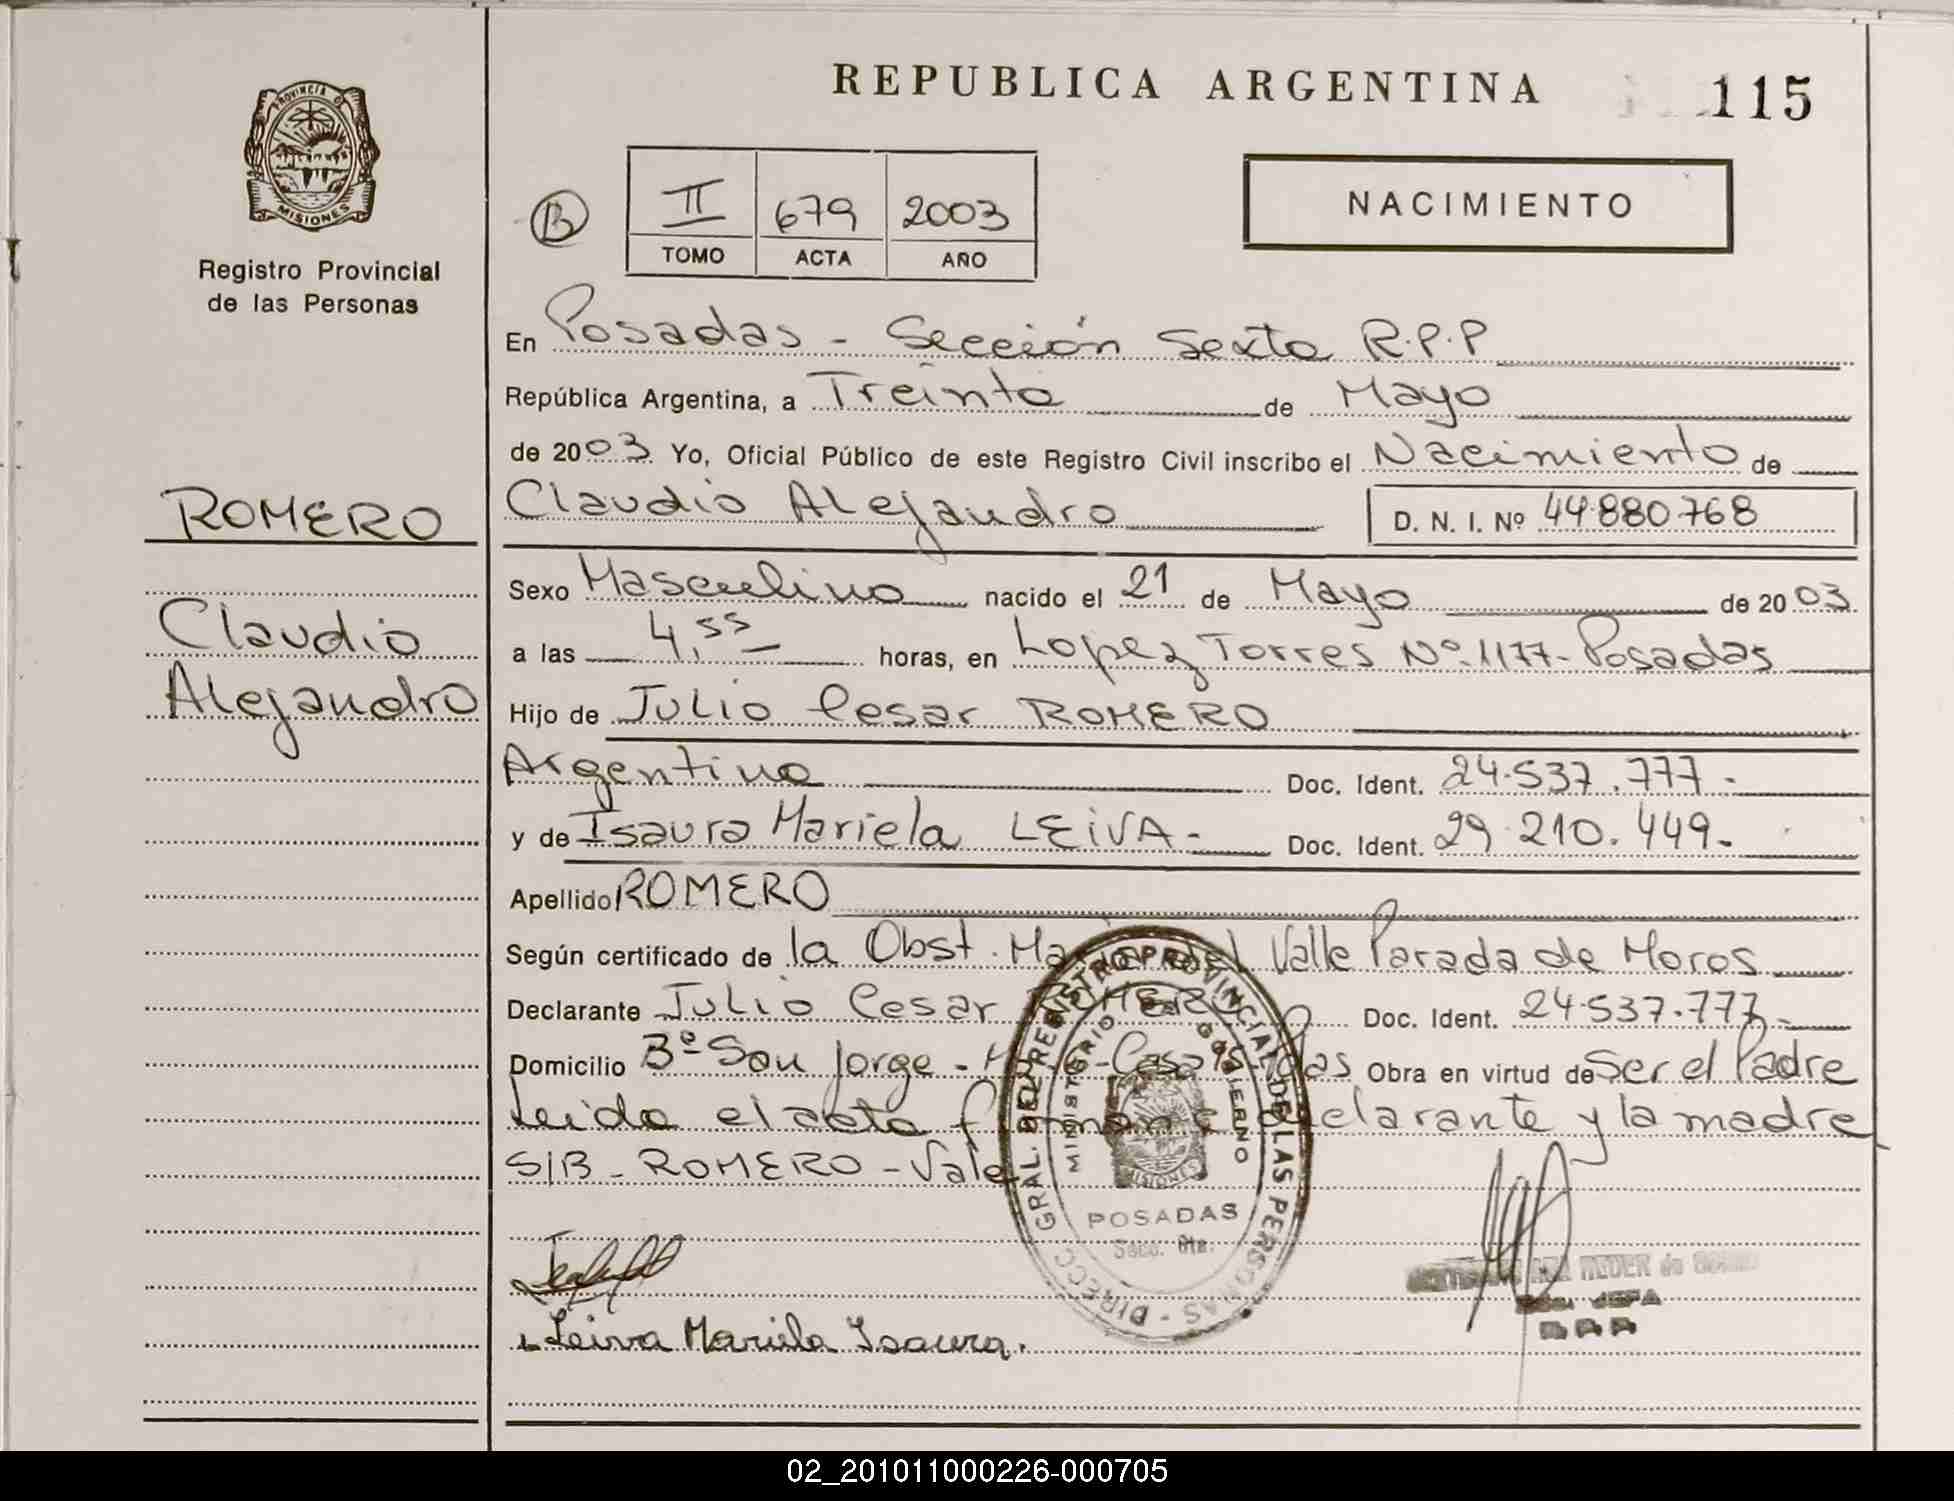 PROVINCIA DE
MISIONES
Registro Provincial
de las Personas
ROMERO
Claudio
Alejandro
REPUBLICA ARGENTINA
115
B
II 679 2003
TOMO ACTA AÑO
NACIMIENTO
En Posadas - Sección Sexta R.P.P
República Argentina, a Treinta de Mayo
de 2003 Yo, Oficial Público de este Registro Civil inscribo el Nacimiento de
Claudio Alejandro D. N. I. Nº 44.880.768
Sexo Masculino nacido el 21 de Mayo de 2003
a las 4,55 horas, en Lopez Torres Nº 1177- Posadas
Hijo de Julio Cesar ROMERO
Argentino Doc. Ident. 24.537.777.-
y de Isaura Mariela LEIVA.- Doc. Ident. 29.210.449.-
Apellido ROMERO
Según certificado de la Obst. del Valle Parada de Moros
Declarante Julio Cesar ROMERO Doc. Ident. 24.537.777.-
Domicilio Bº San Jorge - Obra en virtud de Ser el Padre
Leida el acta declarante y la madre
S/B - ROMERO - Vale
DIRECC. GRAL. DEL REGISTRO PROVINCIAL DE LAS PERSONAS
MINISTERIO DE GOBIERNO
MISIONES
POSADAS
Secc. 6ta.
Leiva Mariela Isaura.
02_201011000226-000705